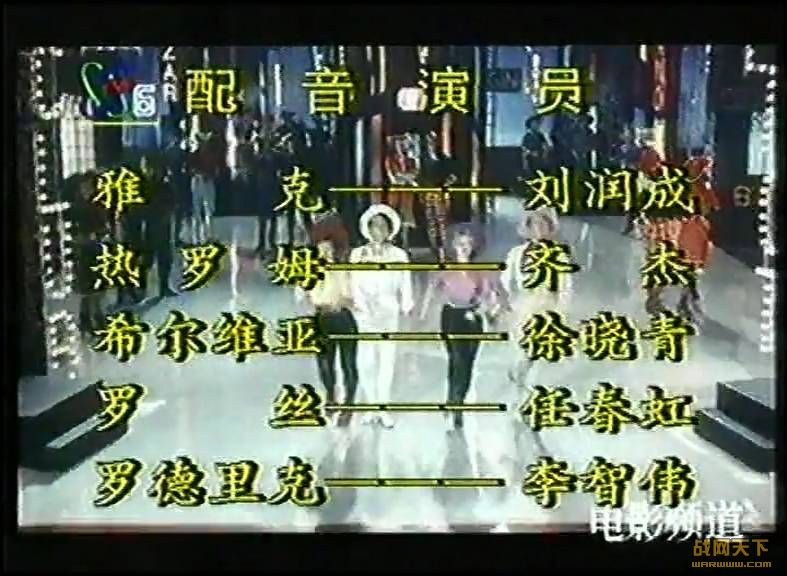 配音演员
雅克——刘润成
热罗姆——齐杰
希尔维亚——徐晓青
罗丝——任春虹
罗德里克——李智伟
电影频道
战网天下
www.warww.com